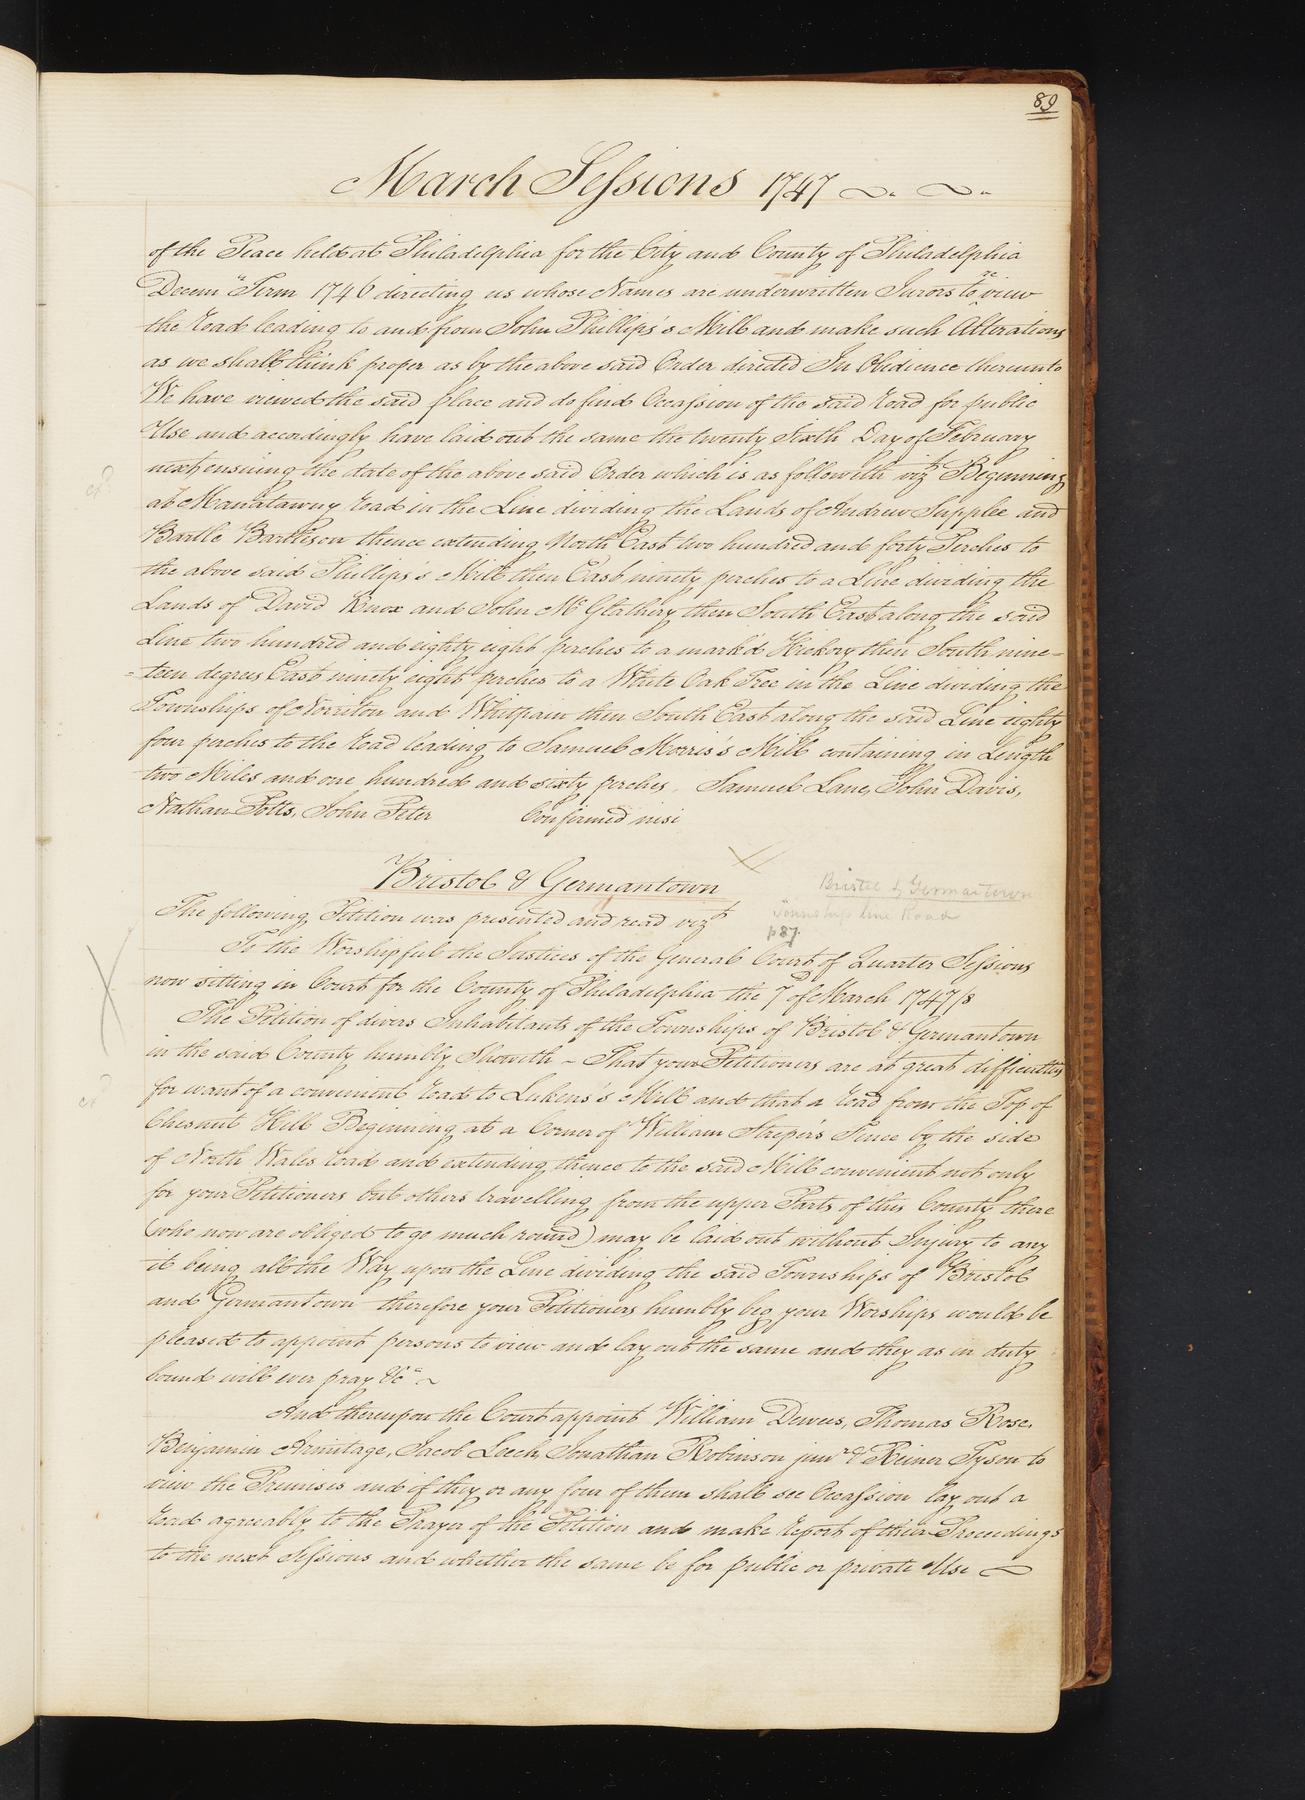 89
March Sessions 1747
of the Peace held at Philadelphia for the City and County of Philadelphia
Decem" Term 1746 directing us whose Names are underwritten Jurors to re view
the road leading to and from John Phillips's Mill and make such Alterations
as we shall think proper as by the above said Order directed In Obedience thereunto
We have viewed the said place and do find Occassion of the said road for public
Use and accordingly have laid out the same the twenty Sixth Day of February
next ensuing the date of the above said Order which is as followeth vizt Beginning
at Manatawny road in the Line dividing the Lands of Andrew Supplee and
Bartle Bartleson thence extending North East two hundred and forty Perches to
the above said Phillips's Mill then East ninety perches to a Line dividing the
Lands of David Knox and John Mc Glathery then South East along the said
Line two hundred and eighty eight perches to a mark'd Hickory then South nine-
-teen degrees East ninety eight perches to a White Oak Tree in the Line dividing the
Townships of Norriton and Whitpain then South East along the said Line eighty
four perches to the road leading to Samuel Morris's Mill containing in Length
two Miles and one hundred and sixty perches. Samuel Lane, John Davis,
Nathan Potts, John Peter Confirmed nisi
Bristol & Germantown
Bristol & Germantown
Township line Road
p87.
The following Petition was presented and read vizt
To the Worshipful the Justices of the General Court of Quarter Sessions
now sitting in Court for the County of Philadelphia the 7th of March 1747/8
The Petition of divers Inhabitants of the Townships of Bristol & Germantown
in the said County humbly Sheweth - That your Petitioners are at great difficulties
for want of a convenient road to Lukens's Mill and that a road from the Top of
Chesnut Hill Beginning at a Corner of William Streper's Fence by the side
of North Wales road and extending thence to the said Mill convenient not only
for your Petitioners but others travelling from the upper Parts of this County there
(who now are obliged to go much round) may be laid out without Injury to any
it being all the Way upon the Line dividing the said Townships of Bristol
and Germantown therefore your Petitioners humbly beg your Worships would be
pleased to appoint persons to view and lay out the same and they as in duty
bound will ever pray &c
And thereupon the Court appoint William Dewees, Thomas Rose,
Benjamin Armitage, Jacob Leech, Jonathan Robinson junr & Reiner Tyson to
view the Premises and if they or any four of them shall see Occassion lay out a
road agreeably to the Prayer of the Petition and make report of their Proceedings
to the next Sessions and whether the same be for public or private Use